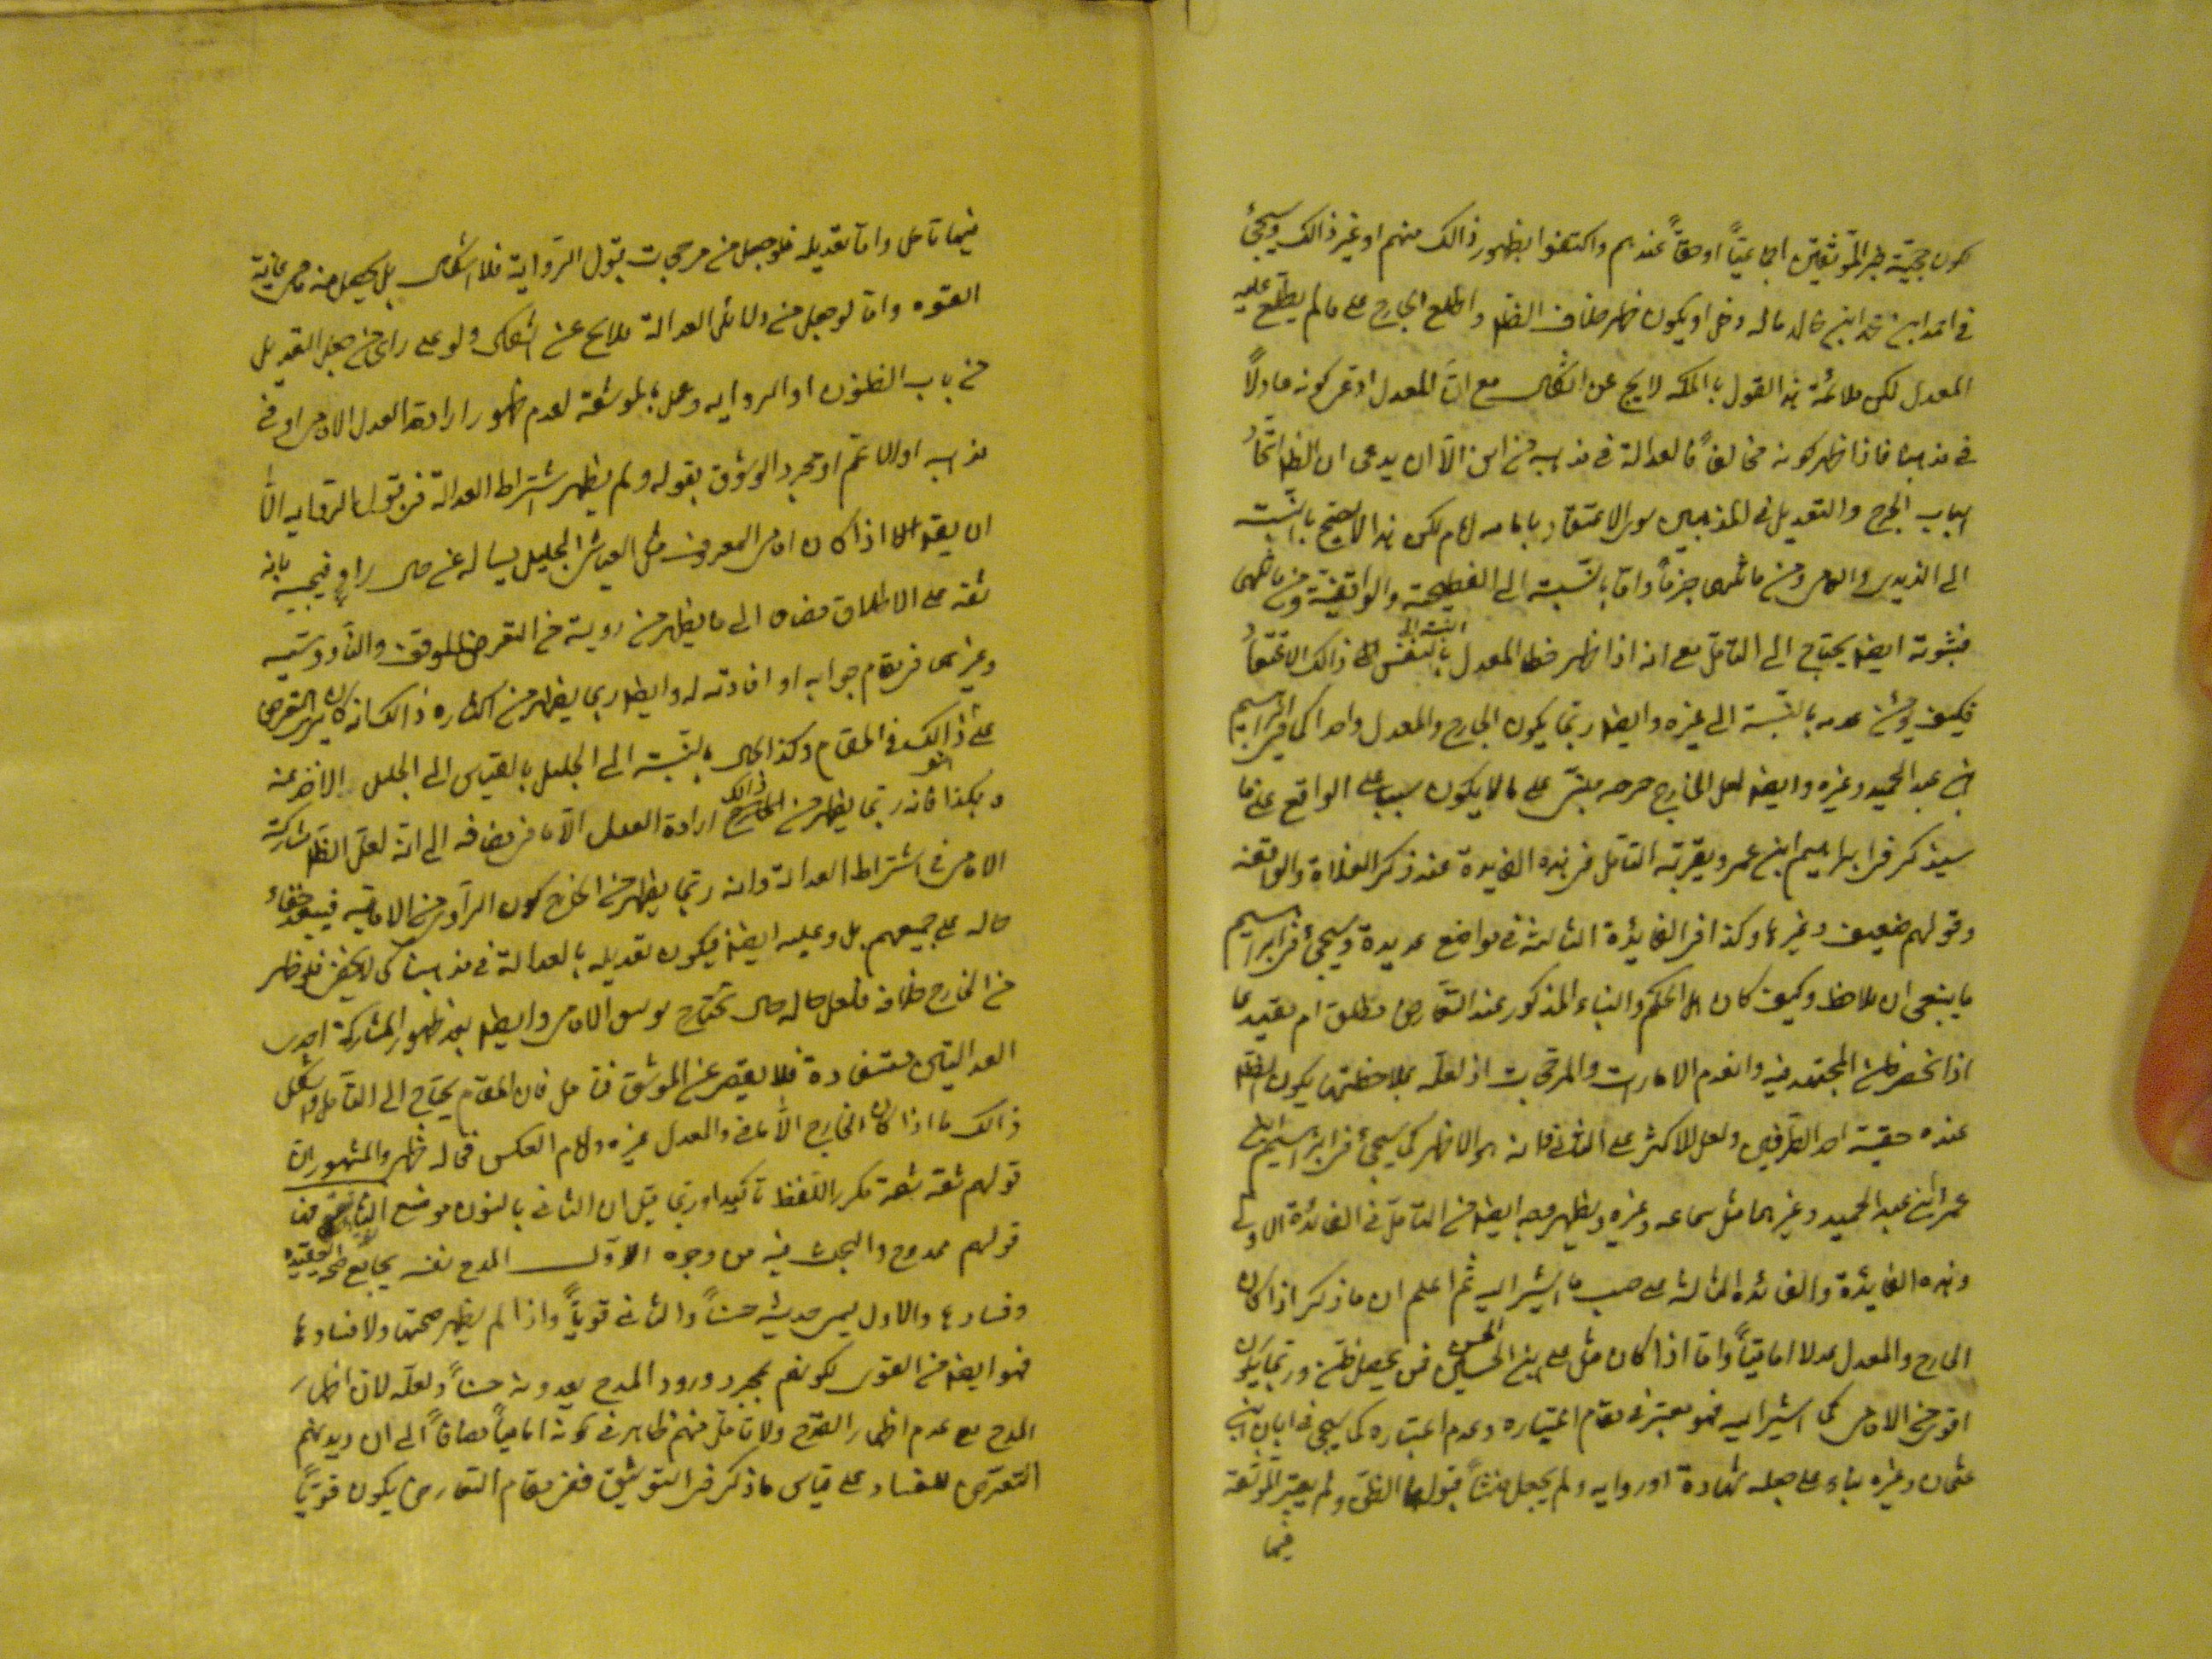 كون حجية خبر الموثقين اجماعيّاً او حقّاً عندهم واكتفوا بظهور ذالك منهم او غير ذالك وسيجئ
في احمد ابن محمد ابن خالد ماله دخل او يكون ظهر خلاف الظم واطلع الجارح على مالم يطّلع عليه
المعدل لكن ملائمة هذا القول بالملكه لا يخ عن اشكال مع انّ المعدل ادعى كونه عادلاً
في مذهبنا فاذا ظهر كونه مخالفاً فالعدالة في مذهبه من اين الّا ان يدعى ان الظم اتحاد
اسباب الجرح والتعديل في المذهبين سوى الاعتقاد بامامة امام لكن هذا لا يصح بالنسبة
الى الزيدي والعامي ومن ماثلهم جزماً وامّا بالنّسبة الى الفطحية والواقفية ومن ماثلهم
فثبوته ايضم يحتاج الى التامّل مع انه اذا ظهر خطا المعدل بالنسبة الى نفس ذالك الاعتقاد
فكيف يؤمن عدمه بالنّسبة الى غيره وايضم ربّما يكون الجارح والمعدل واحدا كما في ابراهيم
ابن عبد الحميد وغيره وايضم لعل الجارح جرحه مبنىّ على مالا يكون سببا على الواقع على ما
سيذكر في ابراهيم ابن عمر ويقربه التامّل في هذه الفايدة عند ذكر الغلاة والواقفه
وقولهم ضعيف وغيرها وكذا في الفايدة الثالثة في مواضع عديدة وسيجئ في ابراهيم
ما ينبغى ان يلاحظ وكيف كان هل الحكم والبناء المذكور عند التعارض مطلق ام مقيد بما
اذا انحصر ظن المجتهد فيه وانعدم الامارات والمرجحات اذ لعلّه بملاحظتها يكون الظم
عنده حقية احد الطرفين ولعل الاكثر على الثاني فانه هو الاظهر كما سيجئ في ابراهيم ابن
عمر ابن عبد الحميد وغيرهما مثل سماعه وغيره ويظهر وجه ايضم من التامّل في الفائدة الاولى
وهذه الفايدة والفائده الثالثه على حسب ما اشير اليه ثم اعلم ان ما ذكر اذا كان
الجارح والمعدل عدلا اماميّاً وامّا اذا كان مثل على ابن الحسن فمن يحصل ظنّه وربّما يكون
اقوى من الامامي كما اشير اليه فهو معتبر في مقام اعتباره وعدم اعتباره كما سيجئ في ابان ابن
عثمان وغيره بناء على جعله شهادة او روايه ولم يجعل منشأ قبولها الظنّ ولم يعتبر الموثّقة
فيما
فيما تامل وامّا تعديله فلو جعل من مرجحات قبول الرّواية فلا اشكال بل يحصل منه في غاية
القوه وامّا لو جعل من دلائل العدالة فلا يخ عن اشكال ولو على راى من جعل التعديل
من باب الظنون او الروايه وعمل بالموثقة لعدم ظهور ارادة العدل الامامي او في
مذهبه او الاعمّ او مجرد الوثوق بقوله ولم يظهر اشتراط العدالة في قبول الرّوايه الّا
ان يقم اذا كان الامامي المعروف مثل العياشى الجليل يساله عن حال راو فيجيبه بانه
ثقه على الاطلاق مضافا الى ما يظهر من رويته من التعرض للوقف والنّاووسيّه
وغيرهما في مقام جوابه او افادته له وايضم ربما يظهر من اكثاره ذالك انه كان يرى التعرض
على ذالك في المقام وكذا الحال بالنسبة الى الجليل بالقياس الى الجليل الاخر عنه
وهكذا فانه ربّما يظهر من الخارج ذالك ارادة العدل الّامامي مضافه الى انّه لعلّ الظم مشاركة
الامامي في اشتراط العدالة وانه ربّما يظهر من الخارج كون الرّاوى من الاماميّه فيبعد خفاء
حاله على جميعهم بل وعليه ايضم فيكون تعديله بالعدالة في مذهبنا كما لا يخفى فلو ظهر
من الخارج خلافه فلعل حاله حال تجريح سوى الامامي وايضم بعد ظهور المشاركة احدى
العدالتين مستفادة فلا يقصر عن الموثق فتامل فان المقام يحتاج الى التامّل واشكل
ذالك ما اذا كان الجارح الّامامي والمعدل غيره وامام العكس فحاله ظهر والمشهور انّ
قولهم ثقه ثقة مكرر اللّفظ تاكيد وربّما قيل ان الثاني بالنون موضع الثاء ومنها
قولهم ممدوح والبحث فيه من وجوه الاوّل المدح نفسه يجامع صحة العقيده
وفسادها والاول يسمى حديثه حسناً والثاني قويّاً واذا لم يظهر صحّتها ولا فسادها
فهو ايضم من القوى لكونهم بمجرد ورود المدح يعدونه حسناً ولعلّه لان اظهار
المدح مع عدم اظهار القدح ولا تامّل منهم ظاهر في كونه اماميّاً مضافاً الى ان ديدنهم
التعرّض للفساد على قياس ما ذكر في التوثيق ففى مقام التعارض يكون قويّاً